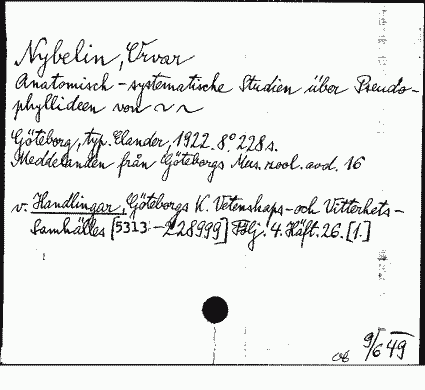 Nybelin, Orvar
Anatomisch-systematische Studien über Pseudo-
phyllideen von ~ ~
Göteborg, typ. Elander, 1922. 8° 228 s.
Meddelanden från Göteborgs Mus. zool. avd. 16
v. Handlingar, Göteborgs K. Vetenskaps- och Vitterhets-
Samhälles [5313-228999] Följ. 4. Häft. 26. [1.]
9/6 49